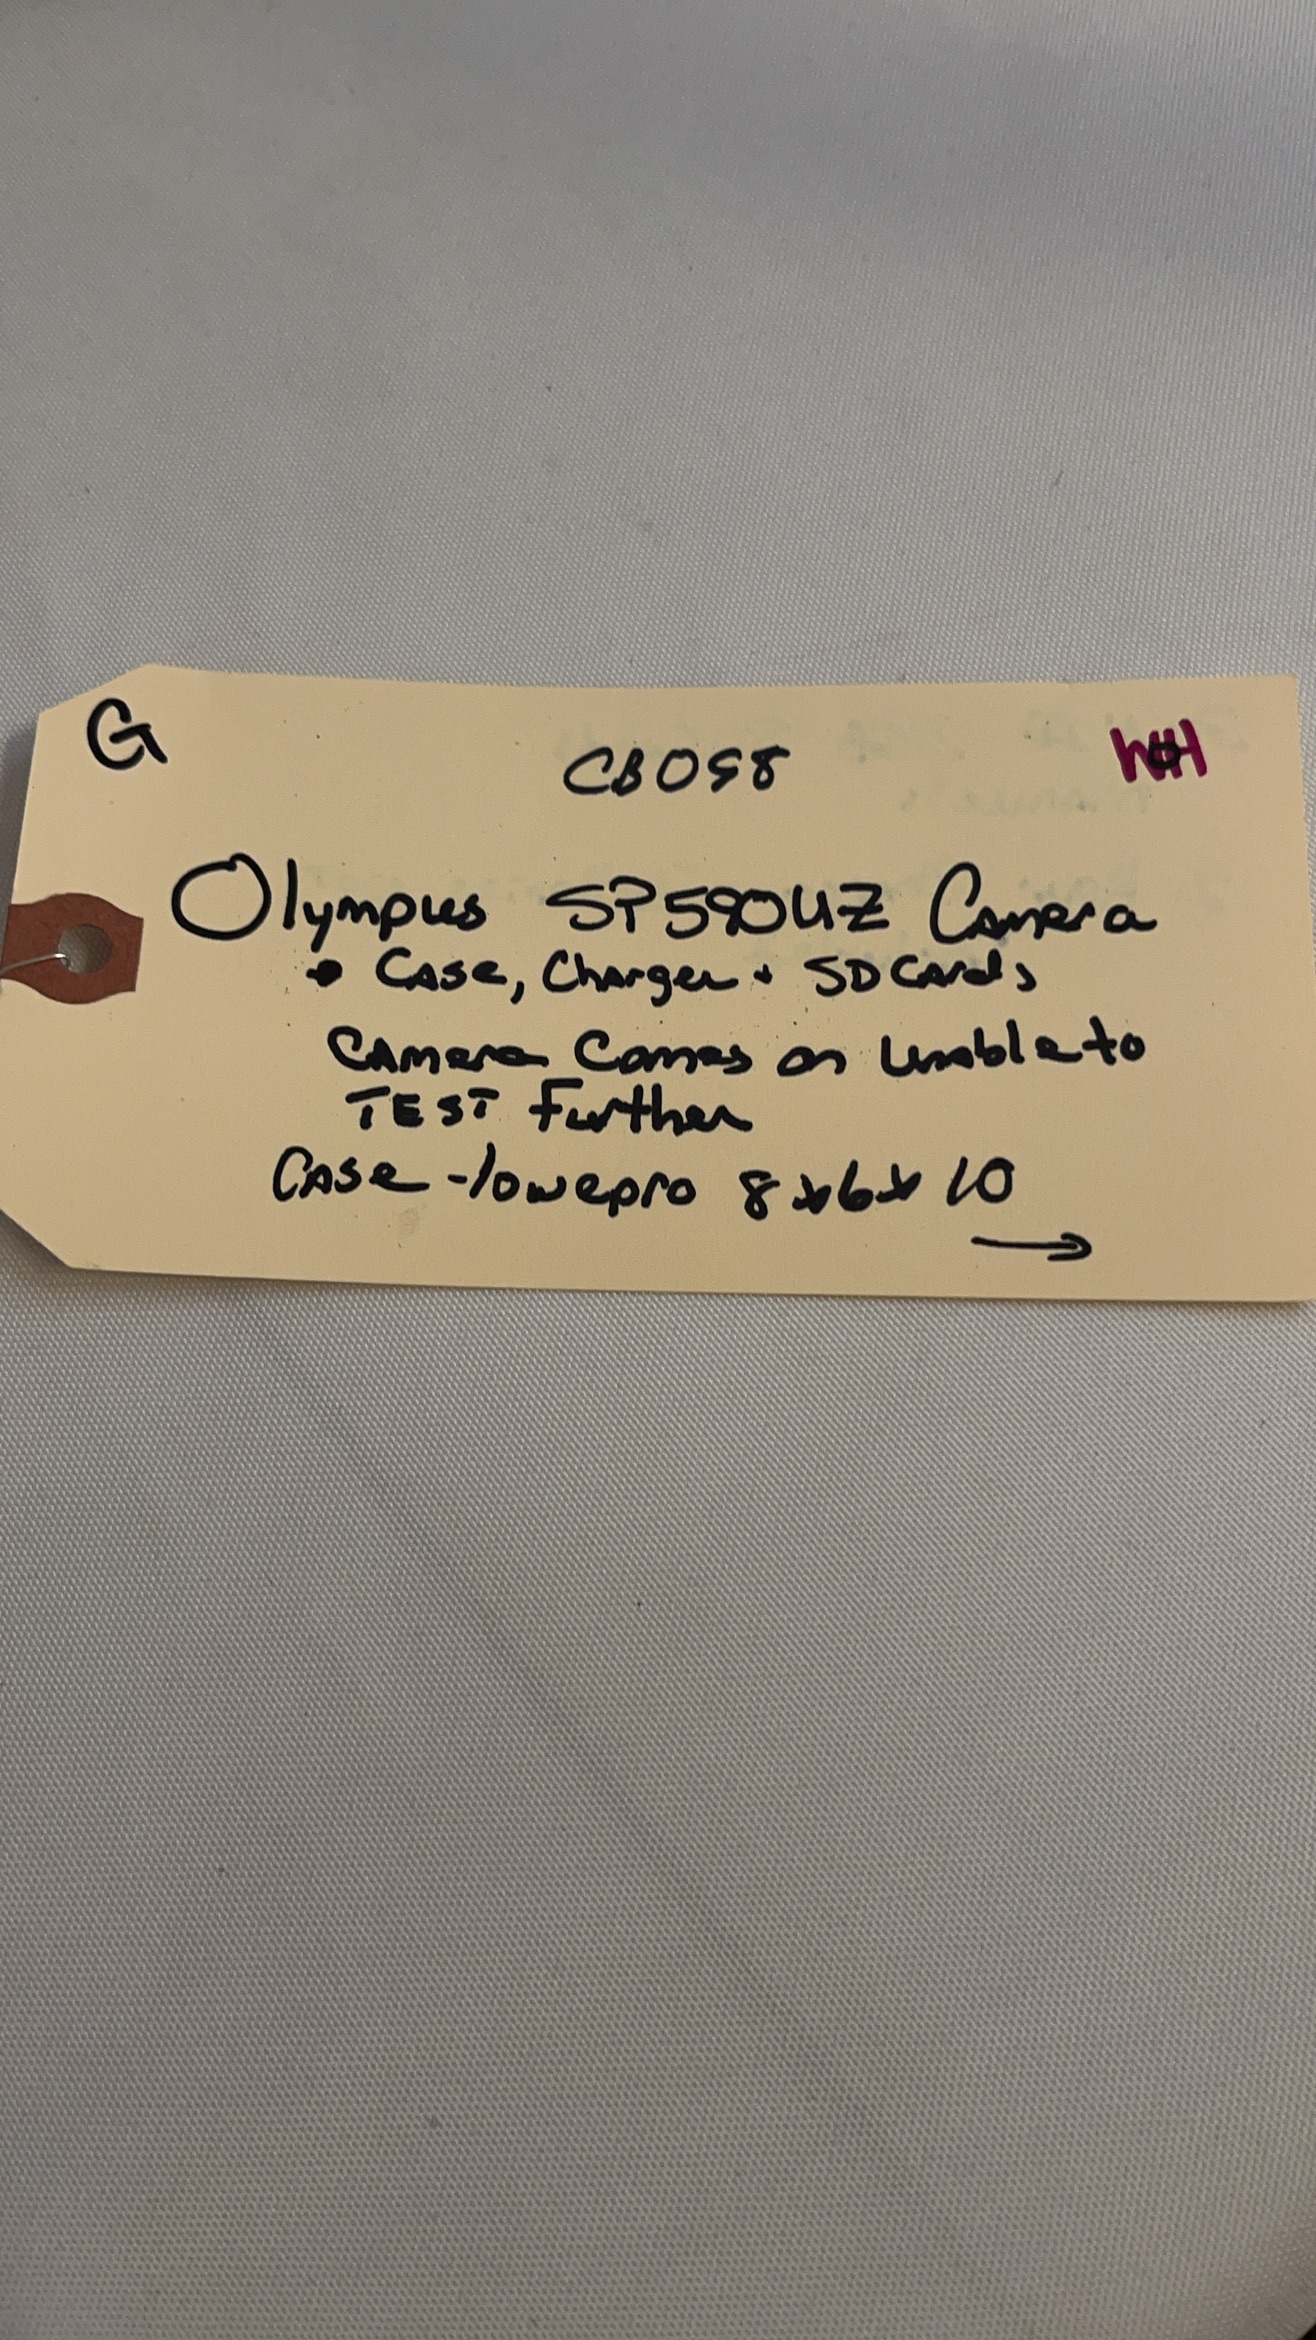 G
CB098
Olympus SP590UZ Camera
• Case, Charger + SD Cards
Camera Comes on Unable to
TEST Further
Case - lowepro 8x6x10
→